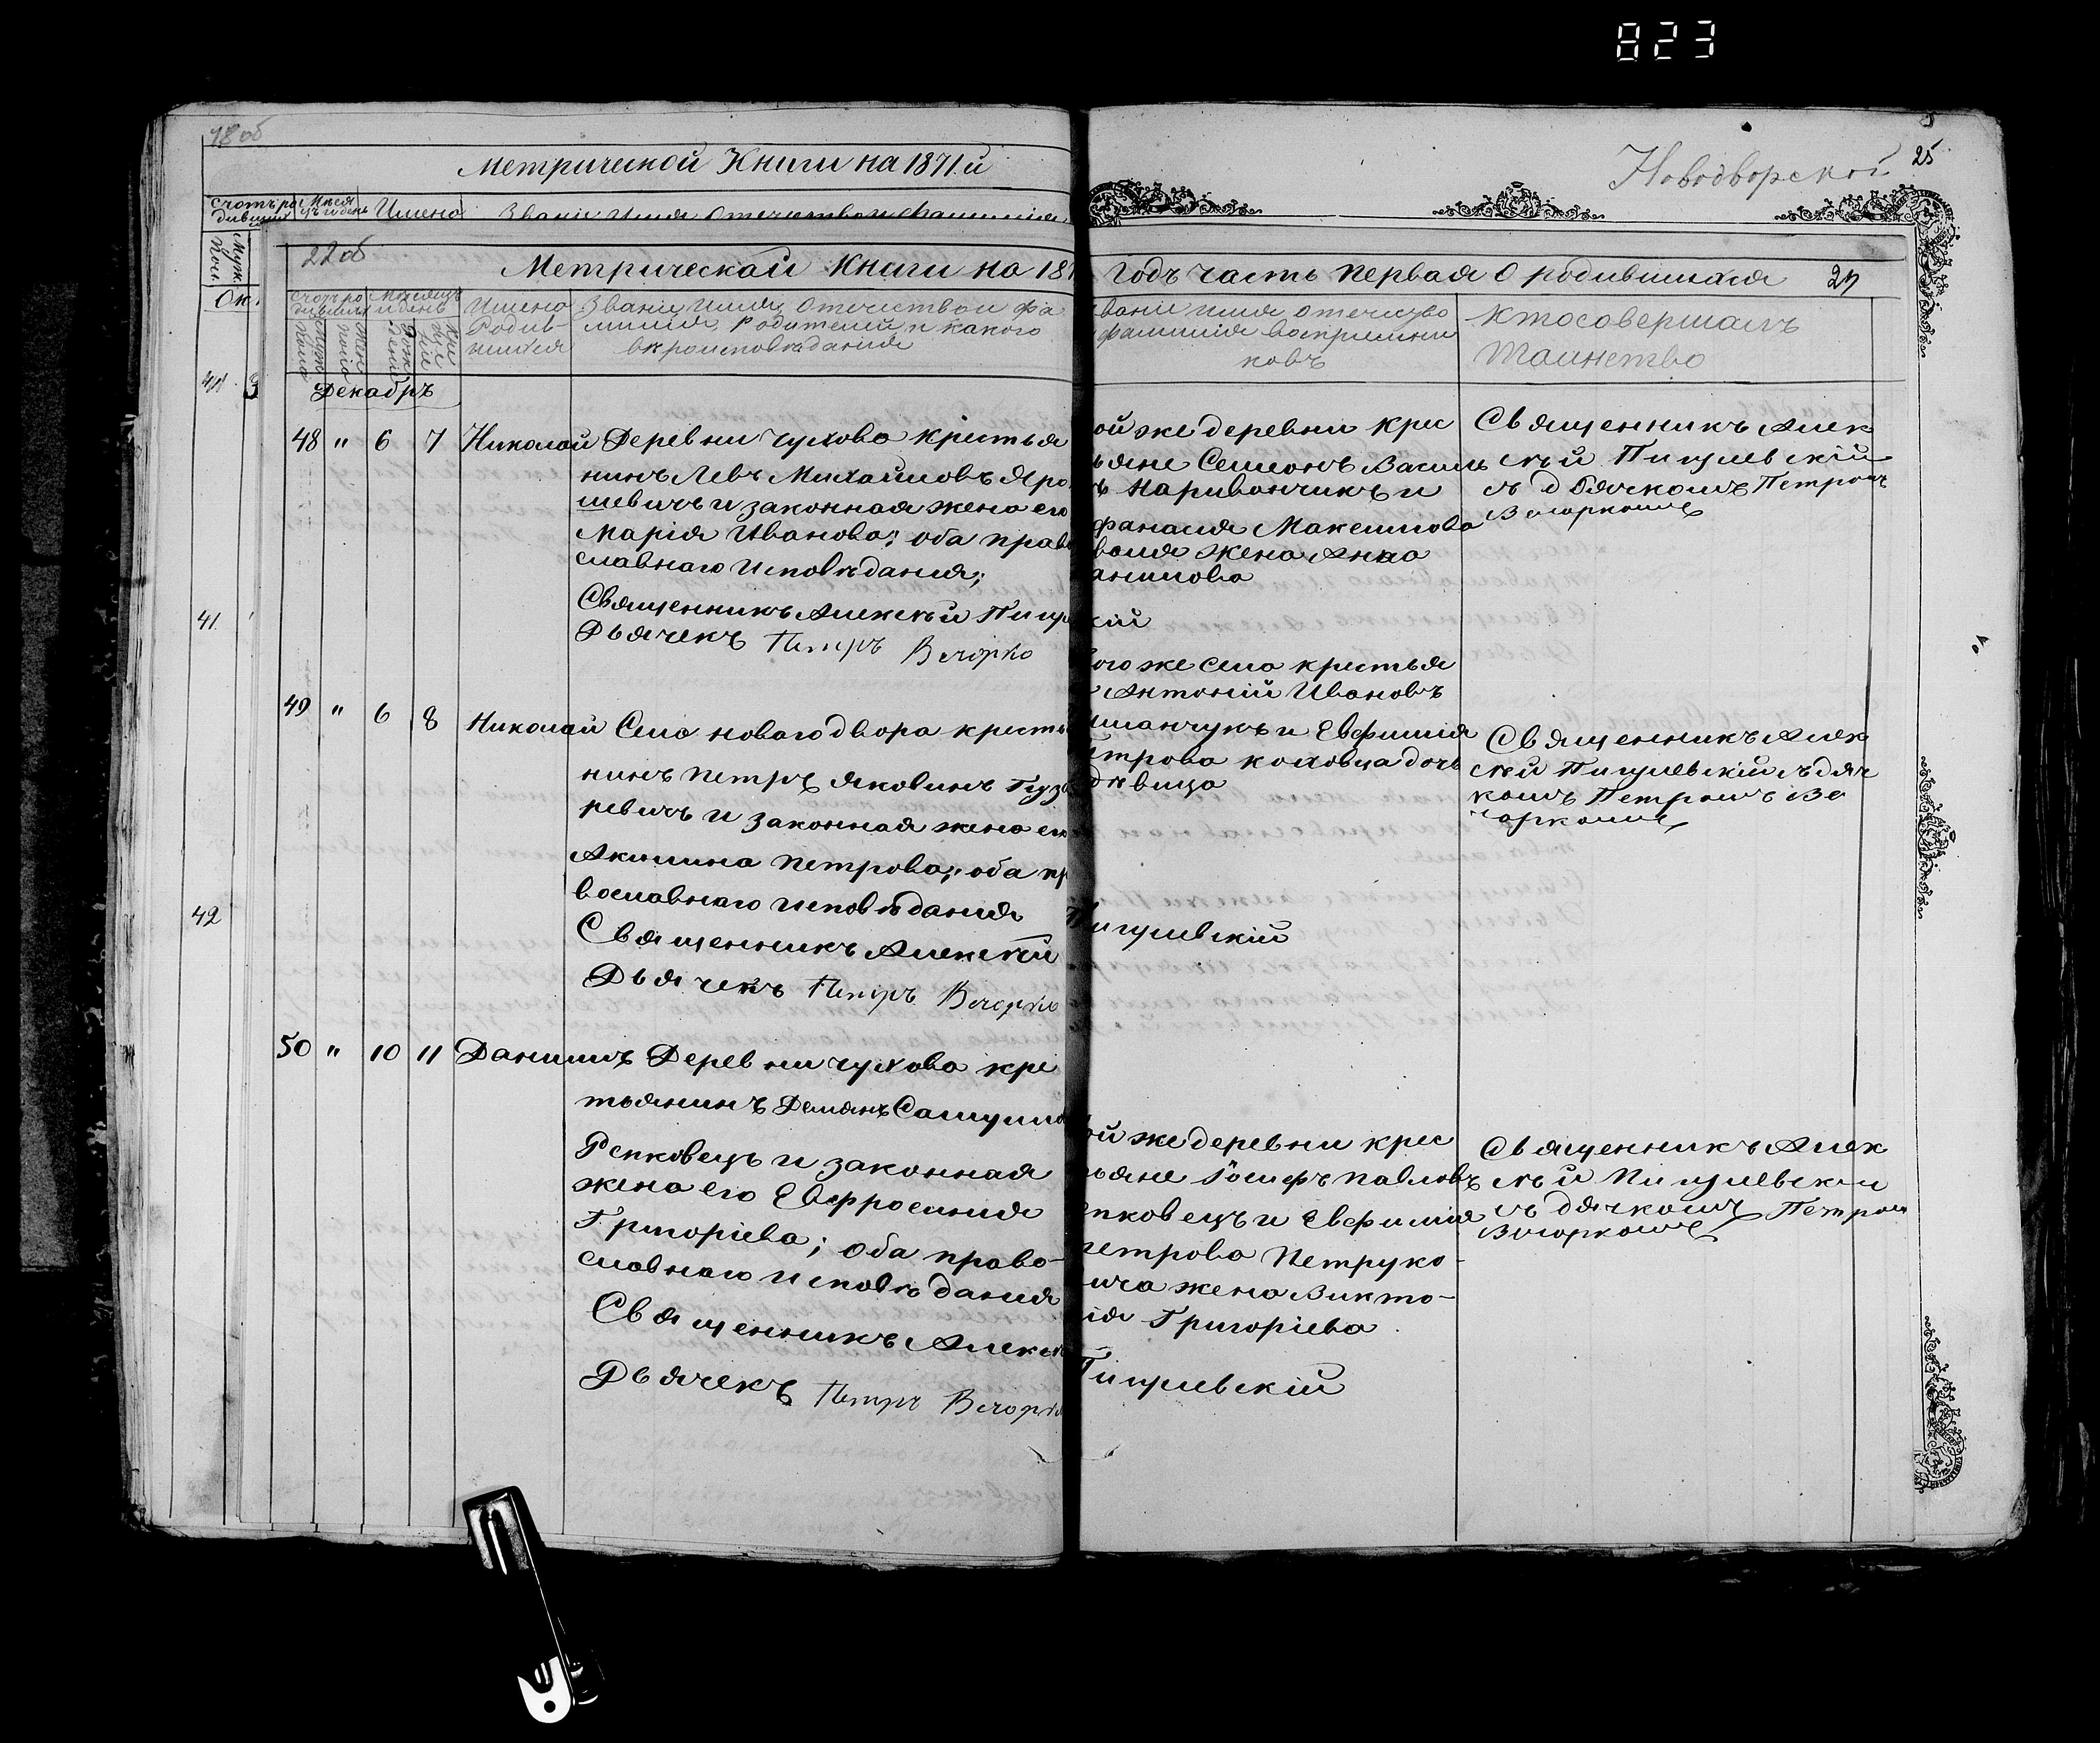 823
18 об
Метрической Книги на 1871 й
Новодворской
25
Счетъ ро
дивших
Имена
Званіе Имя Отечество и фамилія
22 об
Метрической Книги на 187
Годъ часть первая О родившихся
Счетъ ро
дившихся
Месяцъ
и день
Имена
Родив-
шихся
Званіе Имя, Отечество и фа
милія, Родителей и какого
вероисповѣданія
Званіе имя отечество
фамилія воспріемни
ковъ
Кто совершалъ
Таинство
Декабръ
48 " 6 7 Николай Деревни Чухова крестья
нинъ Левъ Михайловъ Яро
шевичъ и законная жена его
Марія Иванова; оба право
славнаго исповѣданія;
Священникъ Алексѣй Пигул
Дьячекъ Петръ Вечорко
ой же деревни крес
ьяне Семіонъ Василь
ъ Наривончикъ и
фанасія Максимова
жена Анна
анилова
кій
Священникъ Алек
сѣй Пигулевскій
съ дьячкомъ Петромъ
Вечоркомъ
41
42
49 " 6 8 Николай Села новаго двора крестья
нинъ Петръ Яковинъ Глуза
ревичъ и законная жена его
Акилина Петрова; оба пр
вославнаго исповѣданія
Священникъ Алексѣй
Дьячекъ Петръ Вечорко
ого же села крестья
Антоній Ивановъ
манчукъ и Евфимія
етрова коховца дочь
дѣвица
Пигулевскій
Священникъ Алек
сѣй Пигулевскій съ дяч
комъ Петромъ Ве
чоркомъ
50 " 10 11 Даниилъ Деревни Чухова кре
тьянинъ Демянъ Самуило
Репковецъ и законная
жена его Евфросинія
Григоріева; оба право-
славнаго исповѣданія
Священникъ Алексѣ
Дьячекъ Петръ Вечорко
ой же деревни крес
ьяне Іосифъ Павловъ
епковецъ и Евфимія
петрова Петруко-
ича жена Викто-
ія Григоріева.
Пигулевскій
Священникъ Алек
сѣй Пигулевски
съ дячкомъ Петром
Вечоркомъ